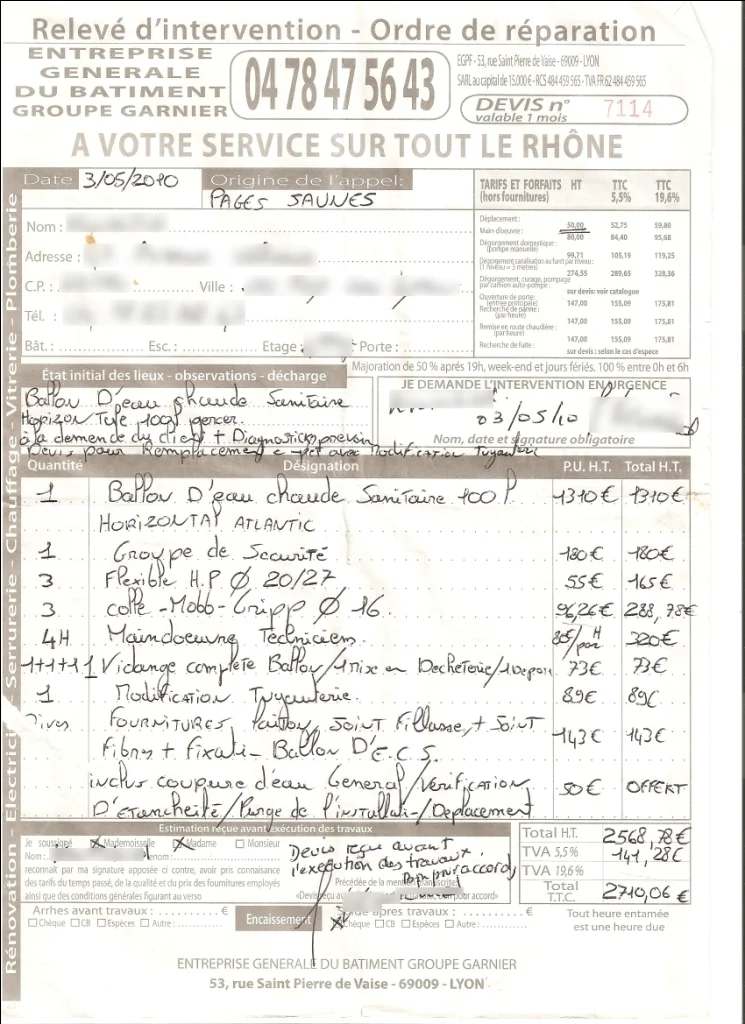 Relevé d'intervention - Ordre de réparation
ENTREPRISE
GENERALE
DU BATIMENT
GROUPE GARNIER
04 78 47 56 43
EGPF - 53, rue Saint Pierre de Vaise - 69009 - LYON
SARL au capital de 15.000 € - RCS 484 459 565 - TVA FR 62 484 459 565
DEVIS n° 7114
valable 1 mois
A VOTRE SERVICE SUR TOUT LE RHÔNE
Rénovation - Electricité - Serrurerie - Chauffage - Vitrerie - Plomberie
Date 3/05/2010 Origine de l'appel:
PAGES JAUNES
Nom :
Adresse :
C.P. : Ville :
Tél. :
Bât.: Esc.: Etage : Porte :
TARIFS ET FORFAITS HT TTC TTC
(hors fournitures) 5,5% 19,6%
Déplacement : 50,00 52,75 59,80
Main-d'oeuvre : 80,00 84,40 95,68
Dégorgement domestique :
(pompe manuelle) 99,71 105,19 119,25
Dégorgement canalisation au furet par niveau :
(1 niveau = 3 mètres) 274,55 289,65 328,36
Dégorgement, curage, pompage
par camion auto-pompe : sur devis: voir catalogue
Ouverture de porte :
(entrée principale) 147,00 155,09 175,81
Recherche de panne :
(par heure) 147,00 155,09 175,81
Remise en route chaudière :
(par heure) 147,00 155,09 175,81
Recherche de fuite : sur devis : selon le cas d'espece
Majoration de 50 % après 19h, week-end et jours fériés, 100 % entre 0h et 6h
État initial des lieux - observations - décharge
Ballon D'eau chaude Sanitaire
Horizon Tale 100l percer.
à la demande du client + Diagnostic
Devis pour Remplacement avec Modification Tuyauterie
JE DEMANDE L'INTERVENTION EN URGENCE
03/05/10
Nom, date et signature obligatoire
Quantité Désignation P.U. H.T. Total H.T.
1 Ballon D'eau chaude Sanitaire 100 l 1310€ 1310€
HORIZONTAL ATLANTIC
1 Groupe de Sécurité 180€ 180€
3 Flexible H.P Ø 20/27 55€ 165€
3 colle-Mobb-Gripp Ø 16 96,26€ 288,78€
4H Maindoeuvre Techniciens. 80€/par H 320€
1+1+1 1 Vidange complète Ballon/1 mise en Decheterie/1 Depor 73€ 73€
1 Modification Tuyauterie. 89€ 89€
Dives FOURNITURES, Joint Fillasse, + Joint
Fibres + Fixati- Ballon D'E.C.S. 143€ 143€
inclus coupure d'eau General/Verification 50€ OFFERT
D'étancheité/Purge de l'installati-/Deplacement
Estimation reçue avant exécution des travaux
Je soussigné Mademoiselle Madame Monsieur
Nom : Prénom :
reconnaît par ma signature apposée ci contre, avoir pris connaissance
des tarifs du temps passé, de la qualité et du prix des fournitures employés
ainsi que des conditions générales figurant au verso
Devis reçue avant
l'exécution des travaux,
Bon pour accord,
Précédée de la mention
«Devis reçu avant pour accord»
Total H.T. 2568,78€
TVA 5,5% 141,28€
TVA 19,6%
Total T.T.C. 2710,06€
Arrhes avant travaux : €
Chèque CB Espèces Autre :
Encaissement
Solde après travaux : €
Chèque CB Espèces Autre :
Tout heure entamée
est une heure due
ENTREPRISE GENERALE DU BATIMENT GROUPE GARNIER
53, rue Saint Pierre de Vaise - 69009 - LYON